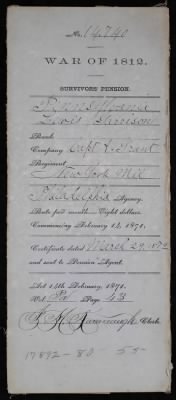 No. 14,740
WAR OF 1812.
SURVIVORS PENSION.
Pennsylvania
Lewis Garrison
Rank
Company Capt. L. Grant
Regiment
New York Mil
Philadelphia Agency.
Rate per month—Eight dollars.
Commencing February 14, 1871.
Certificate dated March 29, 1872
and sent to Pension Agent.
Act 14th February, 1871.
Vol. Pa Page 43
Clerk.
17892-80